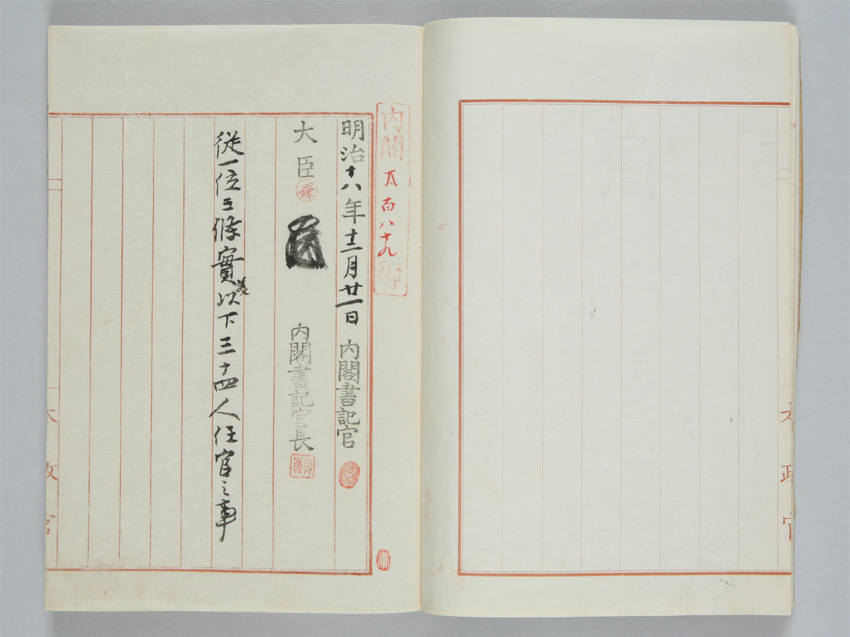 内閣 百八十九号
明治十八年十二月廿一日 内閣書記官
大臣 内閣書記官長
従一位三條實美以下三十四人任官之事
太政官
太政官